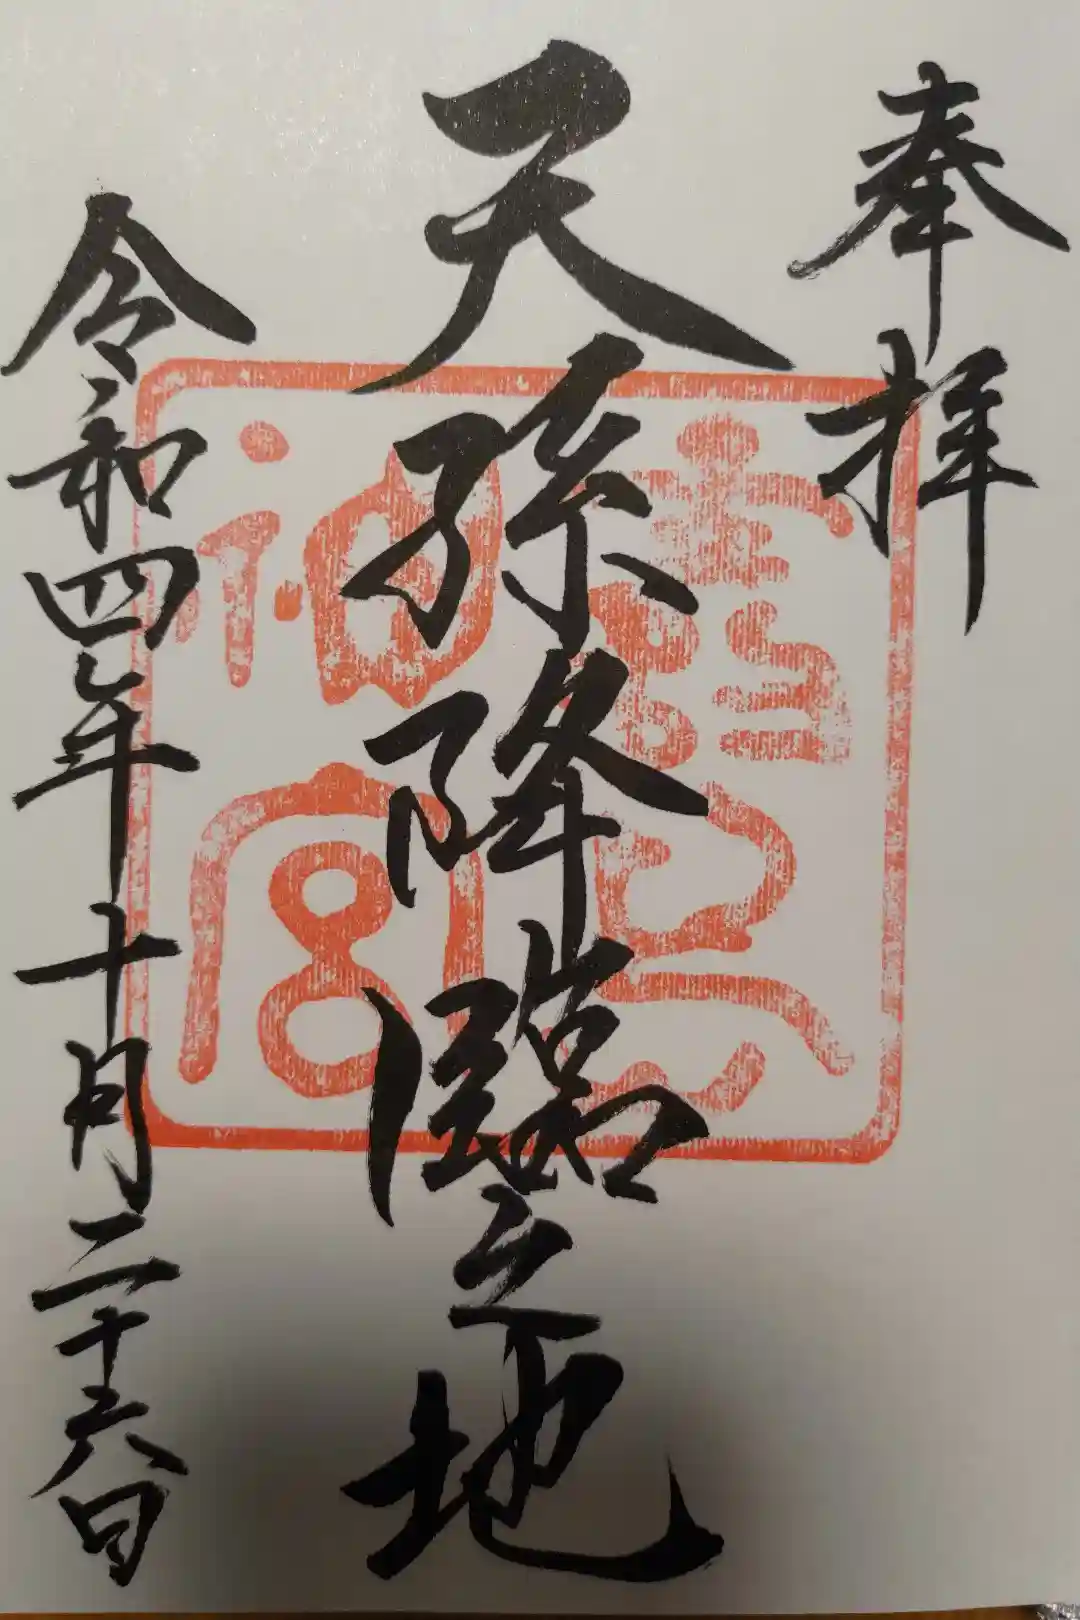 奉拝
天孫降臨之地
霧島
神宮
令和四年十月二十六日